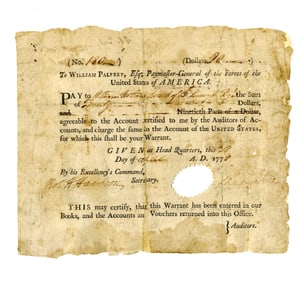 (No. 160 (Dollars, 96
To WILLIAM PALFREY, Esq; Paymaster-General of the Forces of the
United States of AMERICA.
PAY to the Sum
of Dollars,
and Ninetieth Parts of a Dollar,
agreeable to the Account certified to me by the Auditors of Ac-
counts, and charge the same to the Account of the UNITED STATES,
for which this shall be your Warrant.
GIVEN at Head Quarters, this
Day of April A. D. 1778
By his Excellency's Command,
Harrison Secretary.
THIS may certify, that this Warrant has been entered in our
Books, and the Accounts and Vouchers returned into this Office.
} Auditors.